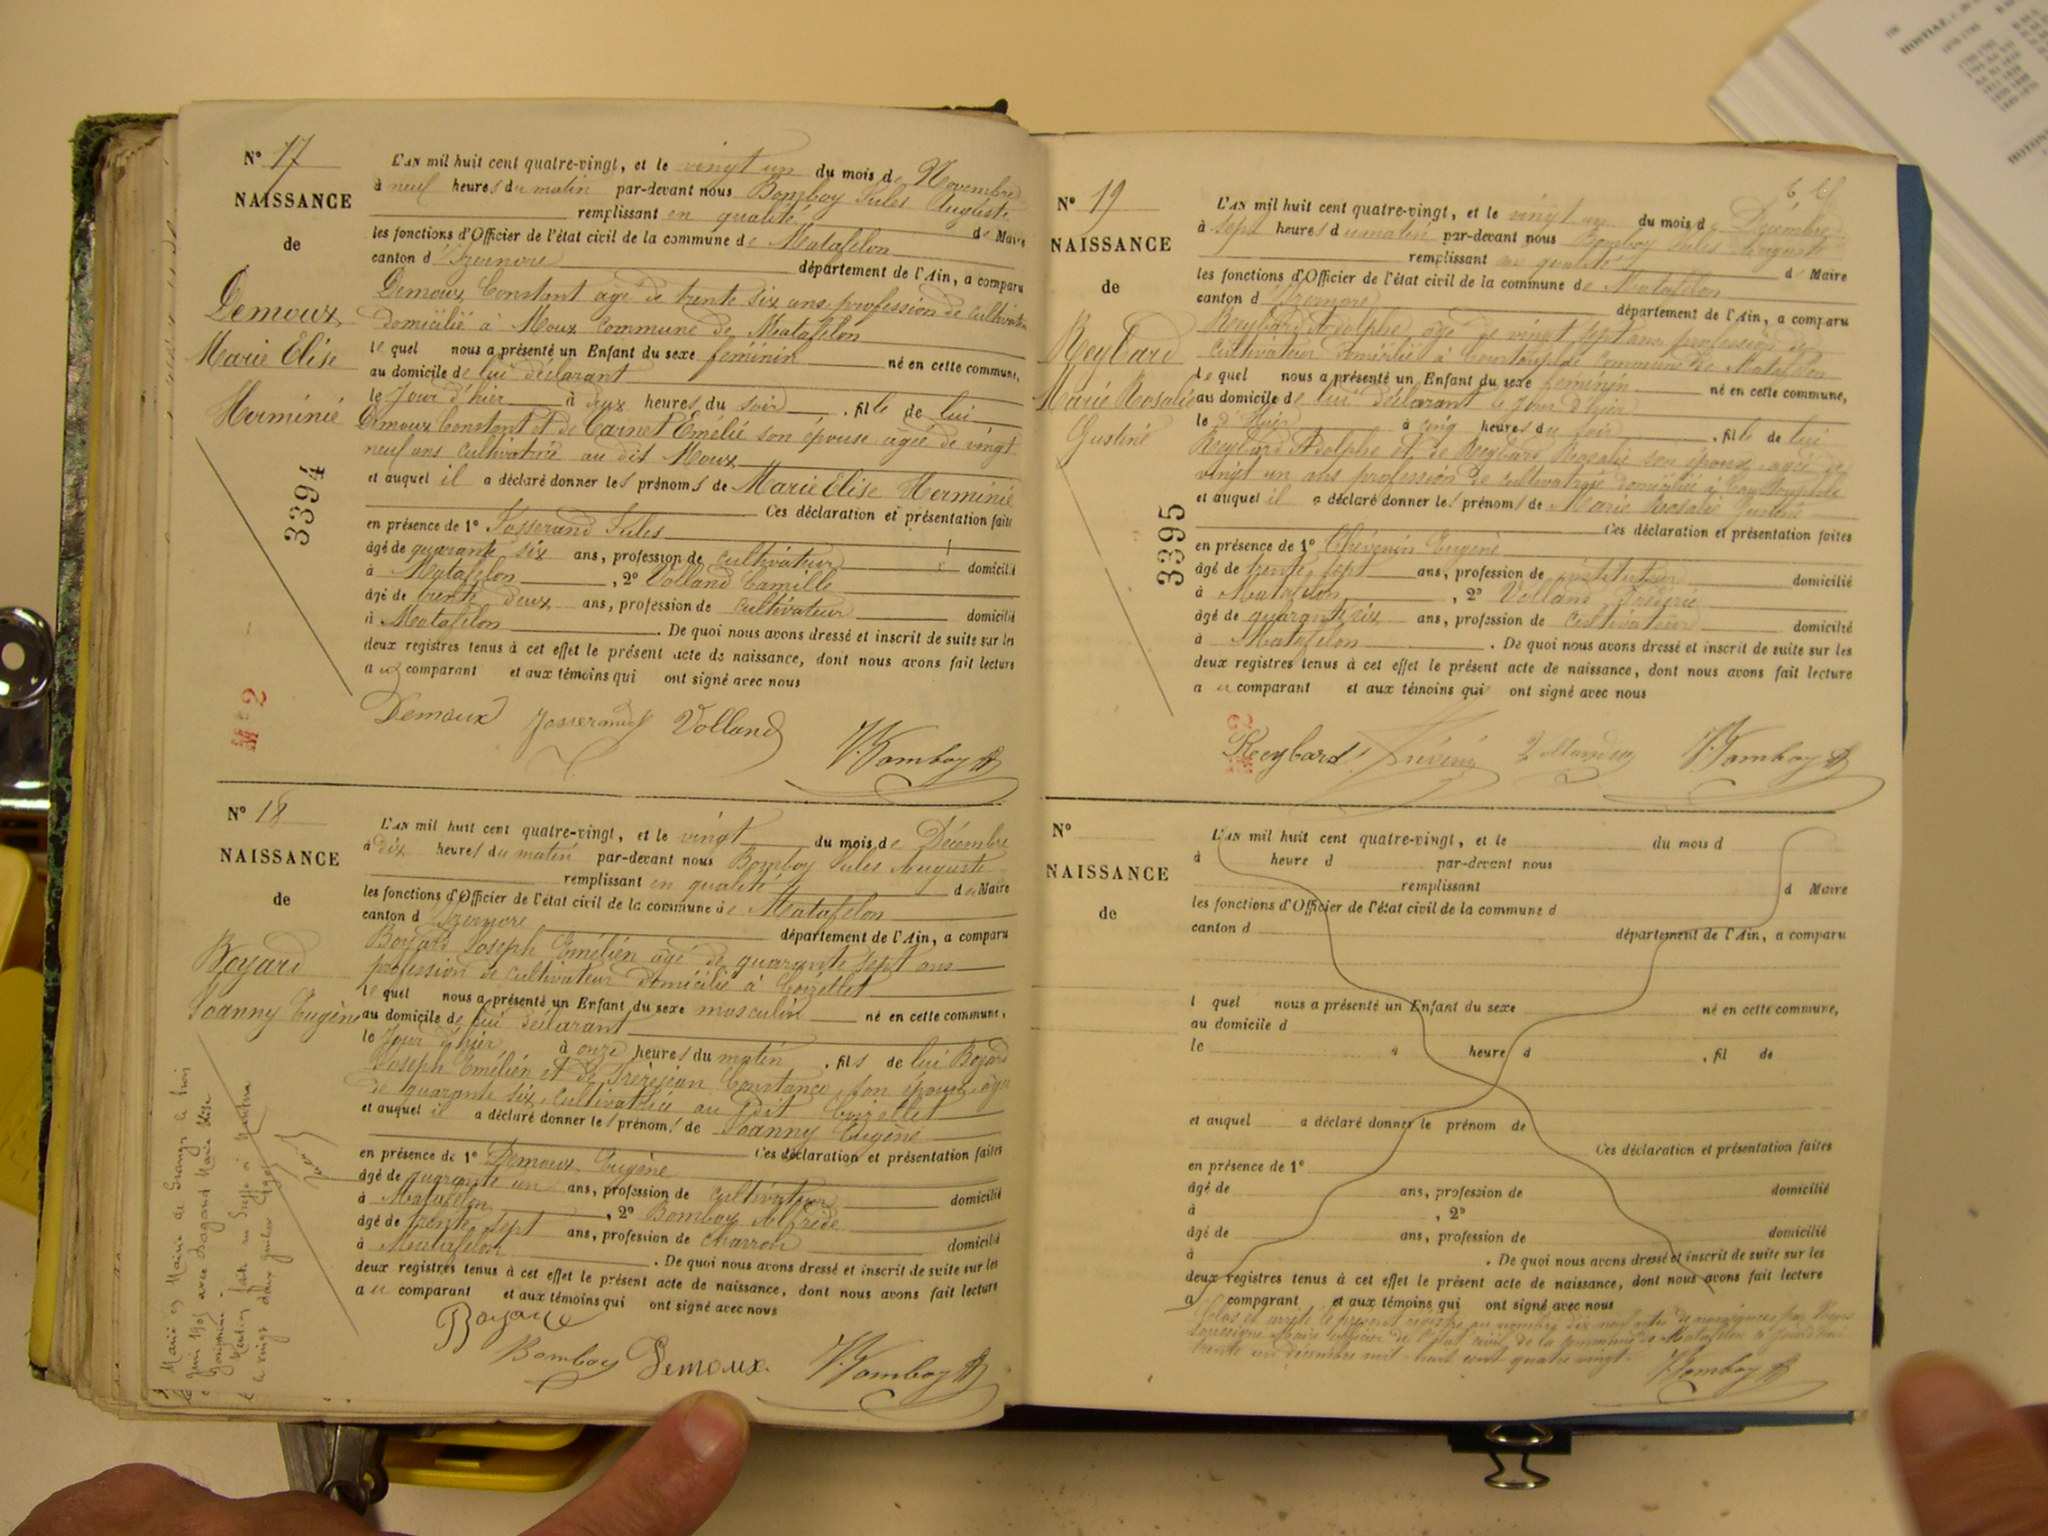 N° 17
NAISSANCE
de
Demoux
Marie Elise
Herminie
3394
M 2
L'AN mil huit cent quatre-vingt, et le vingt un du mois de Novembre
à neuf heures du matin par-devant nous Bomboy Jules Auguste
remplissant en qualité de Maire
les fonctions d'Officier de l'état civil de la commune de Matafelon
canton d'Izernore département de l'Ain, a comparu
Demoux Constant âgé de trente six ans profession de cultivateur
domicilié à Moux commune de Matafelon
lequel nous a présenté un Enfant du sexe féminin né en cette commune,
au domicile de lui déclarant
le Jour d'hier à deux heures du soir , fille de lui
Demoux Constant et de Carnet Emélie son épouse agée de vingt
neuf ans cultivatrice au dit Moux
et auquel il a déclaré donner les prénoms de Marie Elise Herminie
Ces déclaration et présentation faites
en présence de 1° Josserand Jules
âgé de quarante six ans, profession de cultivateur domicilié
à Matafelon , 2° Volland Camille
âgé de trente deux ans, profession de cultivateur domicilié
à Matafelon . De quoi nous avons dressé et inscrit de suite sur les
deux registres tenus à cet effet le présent acte de naissance, dont nous avons fait lecture
a comparant et aux témoins qui ont signé avec nous
Demoux Josserand Volland J. Bomboy
N° 18
NAISSANCE
de
Boyard
Joanny Eugène
L'AN mil huit cent quatre-vingt, et le vingt du mois de Décembre
à dix heures du matin par-devant nous Bomboy Jules Auguste
remplissant en qualité de Maire
les fonctions d'Officier de l'état civil de la commune de Matafelon
canton d'Izernore département de l'Ain, a comparu
Boyard Joseph Emélien agé de quarante sept ans
profession de cultivateur domicilié à Coizellet
lequel nous a présenté un Enfant du sexe masculin né en cette commune,
au domicile de lui déclarant
le Jour d'hier à onze heures du matin , fils de lui Boyard
Joseph Emélien et de Frèrejean Constance son épouse agée
de quarante six, cultivatrice au dit Coizellet
et auquel il a déclaré donner les prénoms de Joanny Eugène
Ces déclaration et présentation faites
en présence de 1° Demoux Eugène
âgé de quarante un ans, profession de cultivateur domicilié
à Matafelon , 2° Bomboy Alfrède
âgé de trente sept ans, profession de charron domicilié
à Matafelon . De quoi nous avons dressé et inscrit de suite sur les
deux registres tenus à cet effet le présent acte de naissance, dont nous avons fait lecture
au comparant et aux témoins qui ont signé avec nous
Boyard
Bomboy Demoux J. Bomboy
Marié en Mairie de Grange le trois
Juin 1905 avec Marie Elise
Mention faite au Greffe à Nantua
le vingt deux juillet 1905
N° 19
NAISSANCE
de
Reybard
Marie Rosalie
Justine
3395
L'AN mil huit cent quatre-vingt, et le vingt un du mois de Décembre
à sept heures du matin par-devant nous Bomboy Jules Auguste
remplissant en qualité de Maire
les fonctions d'Officier de l'état civil de la commune de Matafelon
canton d'Izernore département de l'Ain, a comparu
Reybard Adolphe agé de vingt sept ans profession de
cultivateur domicilié à commune de Matafelon
lequel nous a présenté un Enfant du sexe féminin né en cette commune,
au domicile de lui déclarant le Jour d'hier
le d'hier à cinq heures du soir , fille de lui
Reybard Adolphe et de Reybard Rosalie son épouse agée de
vingt un ans profession de cultivatrice domiciliée à
et auquel il a déclaré donner les prénoms de Marie Rosalie Justine
Ces déclaration et présentation faites
en présence de 1° Thévenin Eugène
âgé de trente sept ans, profession de instituteur domicilié
à Matafelon , 2° Volland
âgé de quarante six ans, profession de cultivateur domicilié
à Matafelon . De quoi nous avons dressé et inscrit de suite sur les
deux registres tenus à cet effet le présent acte de naissance, dont nous avons fait lecture
au comparant et aux témoins qui ont signé avec nous
Reybard J. Bomboy
N°
NAISSANCE
de
L'AN mil huit cent quatre-vingt, et le du mois d
à heure d par-devant nous
remplissant d Maire
les fonctions d'Officier de l'état civil de la commune d
canton d département de l'Ain, a comparu
l quel nous a présenté un Enfant du sexe né en cette commune,
au domicile d
le à heure d , fil de
et auquel a déclaré donner le prénom de
Ces déclaration et présentation faites
en présence de 1°
âgé de ans, profession de domicilié
à , 2°
âgé de ans, profession de domicilié
à . De quoi nous avons dressé et inscrit de suite sur les
deux registres tenus à cet effet le présent acte de naissance, dont nous avons fait lecture
a comparant et aux témoins qui ont signé avec nous
Clos et arrêté le présent registre au nombre dix neuf actes de naissances par Nous
soussigné Maire officier de l'état civil de la commune de Matafelon
trente un décembre mil huit cent quatre vingt.
J. Bomboy